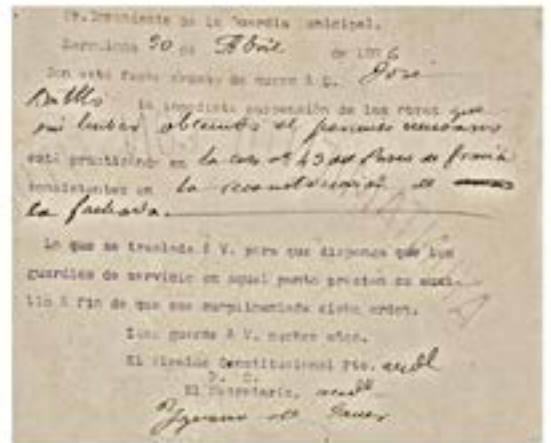 Sr. Comandante de la Guardia Municipal.
Barcelona 30 de Abril de 1906
Con esta fecha de nuevo á D. José
Batlló la inmediata suspension de las obras que
sin haber obtenido el permiso necesario
está practicando en la casa nº 43 del Paseo de Gracia
consistentes en la reconstrucción de
la fachada.
Lo que se traslada á V. para que disponga que los
guardias de servicio en aquel punto presten su auxi-
lio á fin de que sea cumplimentada dicha orden.
Dios guarde á V. muchos años.
El Alcalde Constitucional Pte.
P. A.
El Secretario,